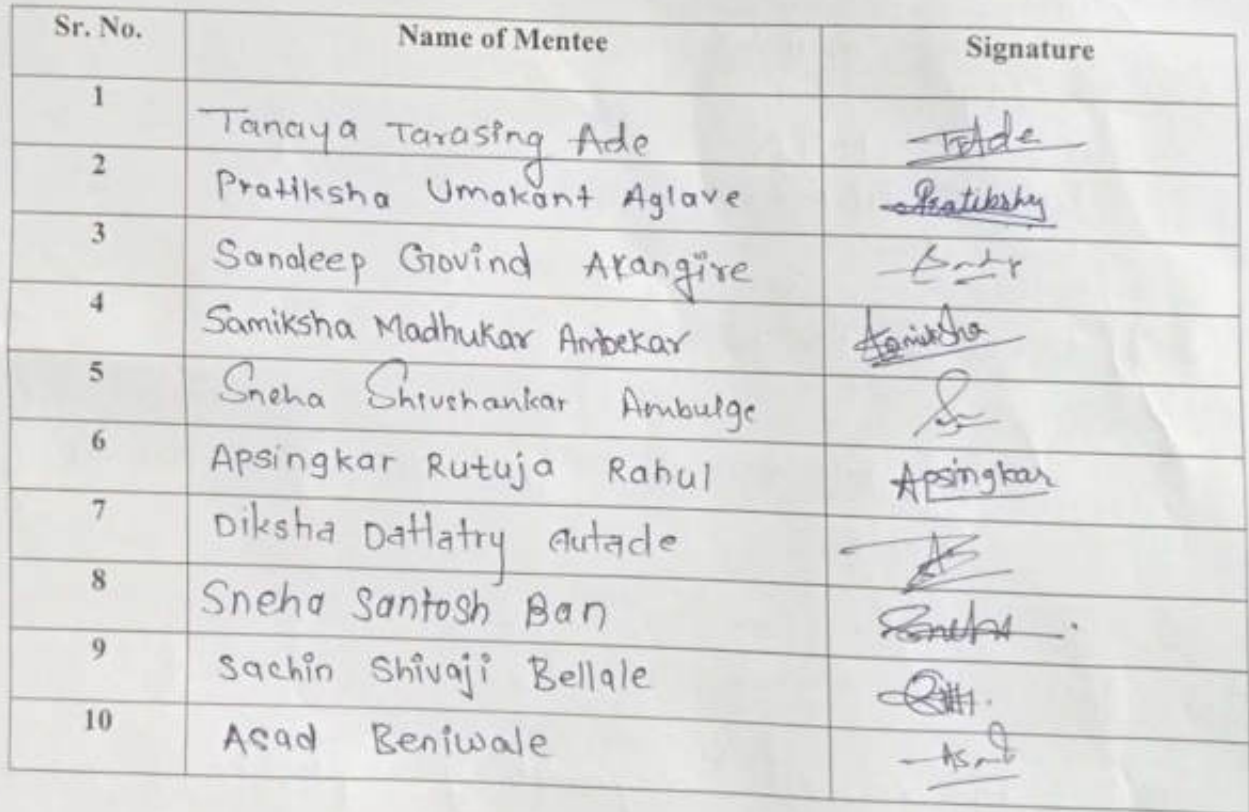 Sr. No. Name of Mentee Signature
1 Tanaya Tarasing Ade TAde
2 Pratiksha Umakant Aglave Pratiksha
3 Sandeep Govind Arangire
4 Samiksha Madhukar Ambekar Samiksha
5 Sneha Shivshankar Ambulge
6 Apsingkar Rutuja Rahul Apsingkar
7 Diksha Dattatry Autade
8 Sneha Santosh Ban Sneha
9 Sachin Shivaji Bellale
10 Asad Beniwale Asad